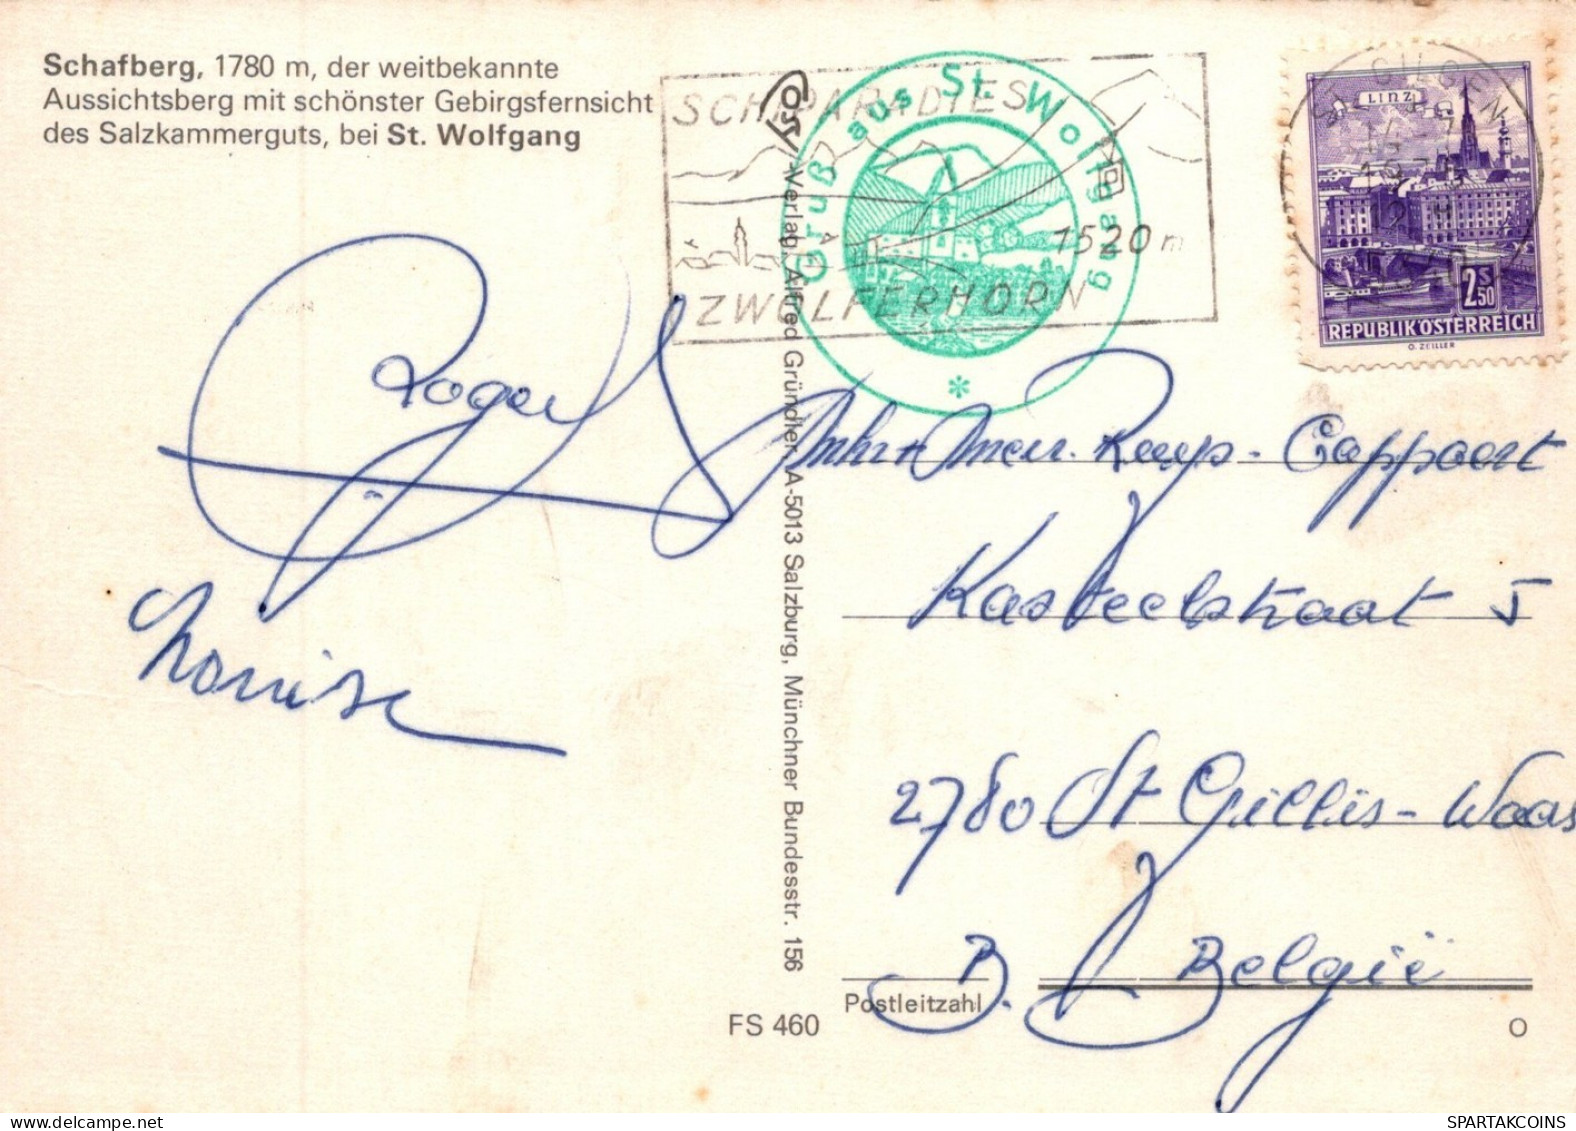 Schafberg, 1780 m, der weitbekannte
Aussichtsberg mit schönster Gebirgsfernsicht
des Salzkammerguts, bei St. Wolfgang
SCHIPARADIES
1520 m
ZWÖLFERHORN
Gruß aus St. Wolfgang
*
ST. GILGEN
LINZ
2S 50
REPUBLIK ÖSTERREICH
O. ZEILLER
Roger
Louise
Verlag Alfred Gründler, A-5013 Salzburg, Münchner Bundesstr. 156
Mhr + Mevr. Ruys - Cappaert
Kasteelstraat 5
2780 St Gillis - Waas
B. België
Postleitzahl
FS 460
O
SPARTAKCOINS